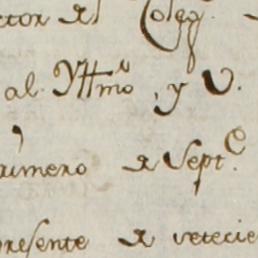 ctor del Coleg.
al Yttmo, y V.
rimero de Septe.
presente de vetecie